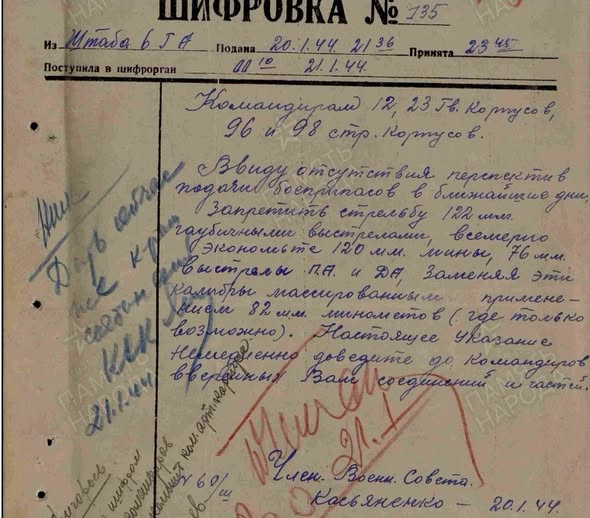 ШИФРОВКА № 135
Из Штаба 6 ГА Подана 20.1.44. 21 36 Принята 23 45
Поступила в шифрорган 00 10 21.1.44.
Командирам 12, 23 Гв. Корпусов,
96 и 98 стр. Корпусов.
Ввиду отсутствия перспектив
подачи боеприпасов в ближайшие дни,
Запретить стрельбу 122 мм.
гаубичными выстрелами, всемерно
Экономьте 120 мм. мины, 76 мм.
выстрелы ПА и ДА, Заменяя эти
калибры массированным примене-
нием 82 мм минометов (где только
возможно). Настоящее указание
Немедленно доведите до командиров
вверенных Вам соединений и частей.
Член. Военн. Совета.
Касьяненко — 20.1.44.
Дать сейчас
же
21.1.44
Читал
21.I
ПАМЯТЬ
НАРОДА